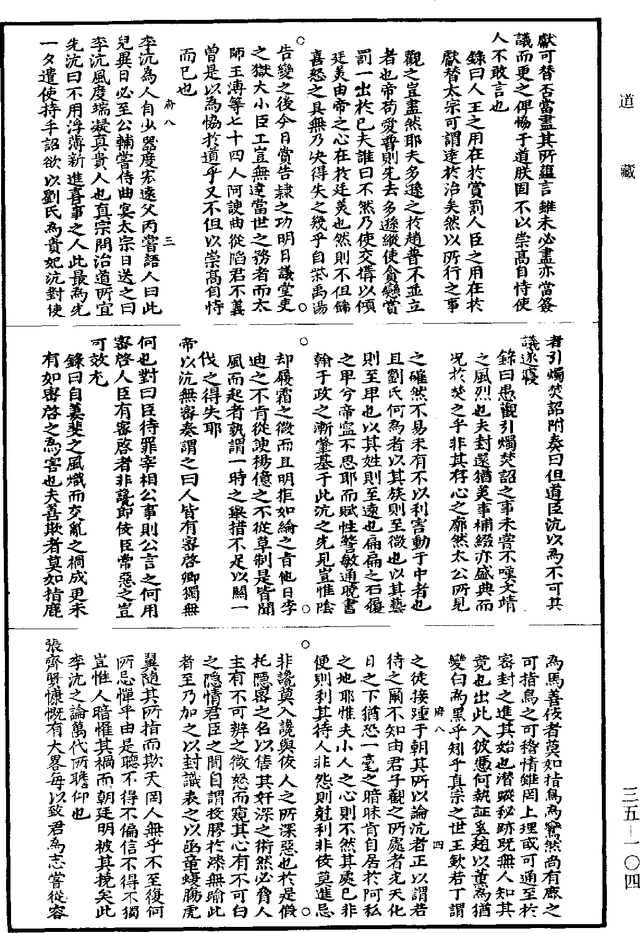 道藏
獻可替否當盡其所蘊言雖未必盡亦當簽
議而更之俾恊于道朕固不以崇高自恃使
人不敢言也
錄曰人王之用在於賞罰人臣之用在於
獻替太宗可謂達於治矣然以所行之事
觀之豈盡然耶夫多遜之於趙普不並立
者也帝苟愛普則先去多遜縱使貪戀賞
罰一出於已夫誰曰不然乃使交搆以傾
廷美由帝之心在於廷美也然則不但飾
喜怒之具無乃決得失之幾乎自
告變之後今日賞告隷之功明日議堂吏
之獄大小臣工豈無達當世之務者而太
師王溥等七十四人阿諛曲從陷君不義
曾是以為恊於道乎又不但以崇高自恃
而已也
府八
三
李沆為人自少器度宏遠父丙嘗語人曰此
兒異日必至公輔嘗侍曲宴太宗目送之曰
李沆風度端凝真貴人也真宗問治道所宜
先沆曰不用浮薄新進喜事之人此最為先
一夕遣使持手詔欲以劉氏為貴妃沆對使
者引燭焚詔附奏曰但道臣沆以為不可其
議遂寢
錄曰愚觀引燭焚詔之事未嘗不嘆文靖
之風烈也夫封還猶美事補綴亦盛典而
况於焚之乎非其存心之廓然太公所見
之確然不易未有不以利害動于中者也
且劉氏何為者以其族則至微也以其藝
則至甲也以其姓則至遠也扁扁之石履
之卑兮帝寧不思耶而賦性警敏通曉書
翰于政之漸肇基于此沆之先見豈惟陰
却履霜之微而且明拒如綸之旨他日李
迪之不肯從諛楊億之不從草制是皆聞
風而起者孰謂一時之舉措不足以關一
代之得失耶
帝以沆無密奏謂之曰人皆有密啓卿獨無
何也對曰臣待罪宰相公事則公言之何用
密啓人臣有密啓者非讒即佞臣常惡之豈
可效尤
錄曰自萋斐之風熾而交亂之禍成更未
有如密啓之為害也夫善欺者莫如指鹿
為馬善佞者莫如指鳥為鸞然尚有鹿之
可指鳥之可擔情雖罔上理或可通至於
密封之進其始也潜蹤秘跡既無人知其
竟也出此入彼憑何執証奚趐以黃為猶
變白為黑乎矧乎真宗之世王欽若丁謂
府八
四
之徒接踵于朝其所以論沆者正以謂君
待之爾不知由君子觀之所處者光天化
日之下猶恐一毫之暗昧肯自居於阿私
之地耶惟夫小人之心則不然其處巳非
便則利其待人非怨則敄利非佞莫進忌
非讒莫入讒與佞人之所深惡也於是假
托隱密之名以售其奸深之術然必脅人
主有不可辨之微怒而窺其心有不可白
之隱情君臣之間自謂投膠於漆無踰此
者至乃加之以封識表之以函章蜮腸虎
翼隨其所指而欺天罔人無乎不至復何
所忌憚乎由是聽不得不偏信不得不獨
豈惟人暗罹其禍而朝廷明被其撓矣此
李沆之論萬代所瞻仰也
張齊賢慷慨有大畧每以致君為志嘗從容
三五一一〇四